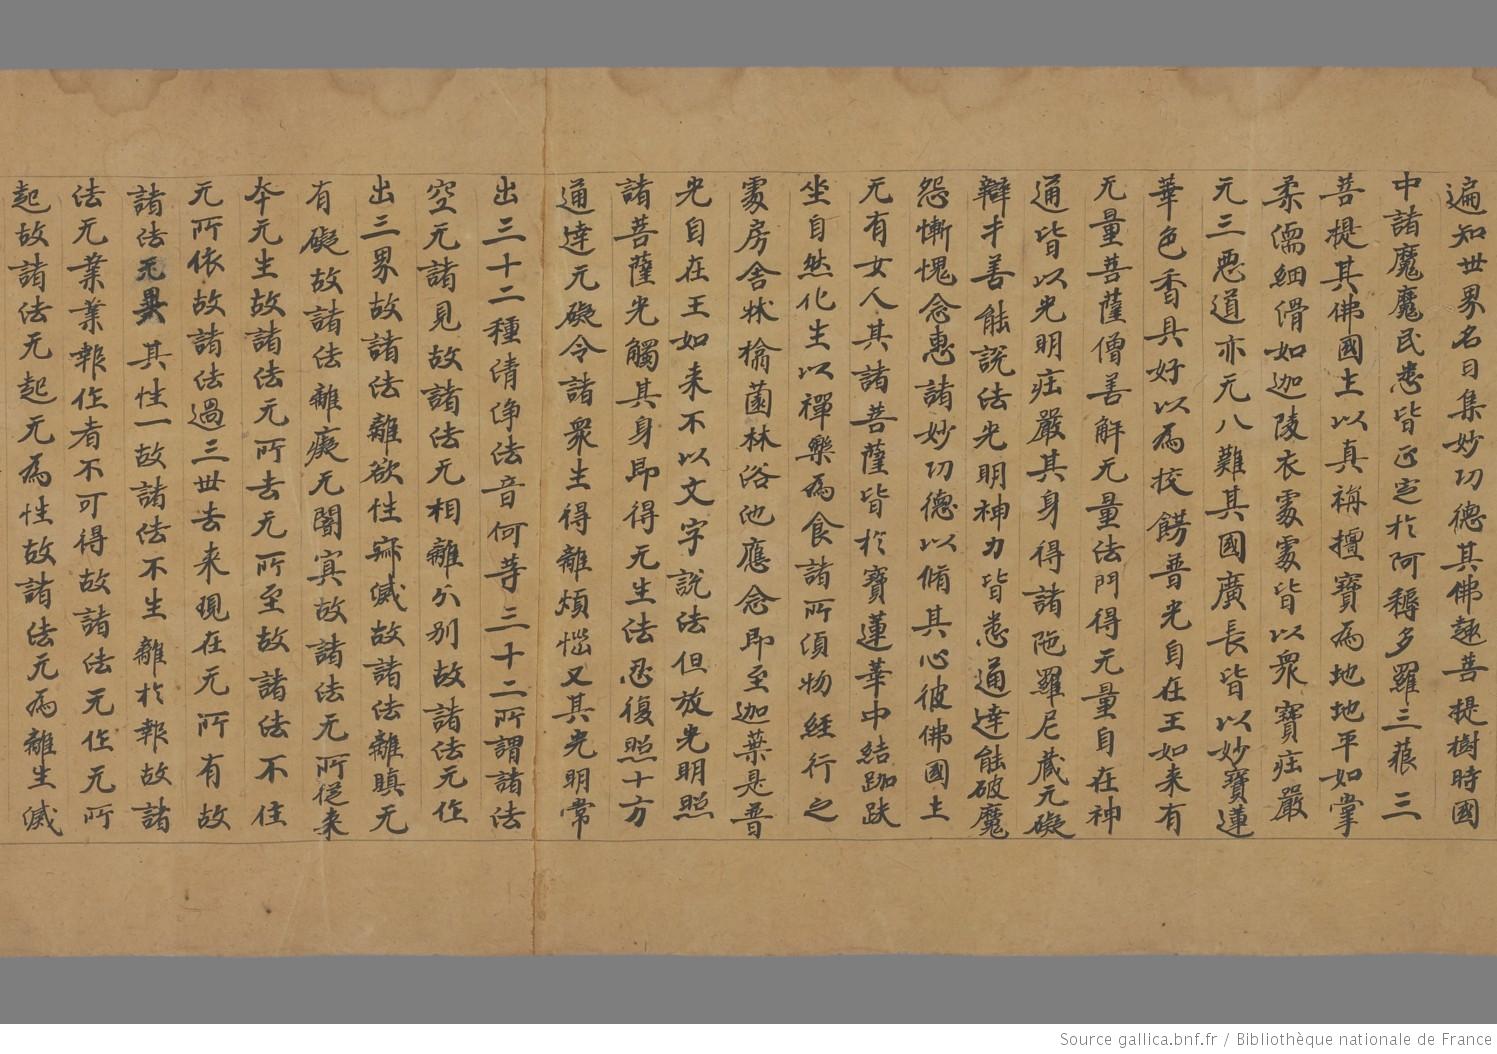 遍知世界名曰集妙功德其佛趣菩提樹時國
中諸魔魔民悉皆㔾定於阿耨多羅三藐三
菩提其佛國土以真栴檀寶為地地平如掌
柔濡細滑如迦陵衣處處皆以衆寶莊嚴
元三惡道亦元八難其國廣長皆以妙寶蓮
華色香具好以為挍餝普光自在王如来有
元量菩薩僧善解元量法門得元量自在神
通皆以光明莊嚴其身得諸陁羅尼蔵元礙
辯才善能說法光明神力皆悉通達能破魔
怨慚愧念惠諸妙功德以脩其心彼佛國土
元有女人其諸菩薩皆於寶蓮華中結跏趺
坐自然化生以禪樂為食諸所湏物經行之
處房舍牀榻薗林浴池應念即至迦葉是普
光自在王如来不以文字說法但放光明照
諸菩薩光觸其身即得元生法忍復照十方
通達元礙令諸衆生得離煩惱又其光明常
出三十二種清淨法音何等三十二所謂諸法
空元諸見故諸法元相離分別故諸法元作
出三界故諸法離欲性寂滅故諸法離瞋元
有礙故諸法離癡元闇冥故諸法元所從来
本元生故諸法元所去元所至故諸法不住
元所依故諸法過三世去来現在元所有故
諸法元異其性一故諸法不生離於報故諸
法元業業報作者不可得故諸法元作元所
起故諸法元起元為性故諸法元為離生滅
Source gallica.bnf.fr / Bibliothèque nationale de France